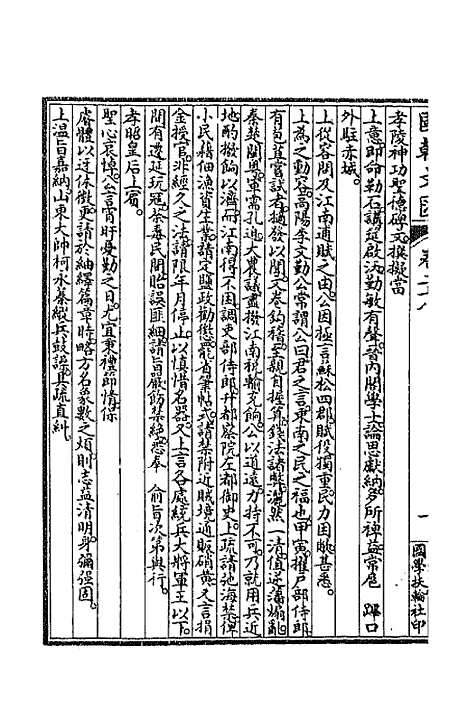 國朝文匯 卷二十八 一 國學扶輪社印
孝陵神功聖德碑文撰擬當
上意即命勒石講筵啟沃勤敏有聲晉內閣學士論思獻納多所裨益常扈 蹕口
外駐赤城
上從容問及江南逋賦之由公因極言蘇松四郡賦役獨重民力困賍善悉
上為之動容高陽李文勤公常謂公曰君之言東南之民之福也甲寅擢戶部侍郎
有苞苴嘗試者擿發以聞文卷鈎稽至親自握算錢法諸弊灑然一清值滇猺亂
秦楚閩粵軍需孔迫大農議盡撥江南稅輸充餉公以道遠力持不可乃就用兵近
地酌撥餉以濟而江南得不困調吏部侍郎升都察院左都御史上疏請弛海禁俾
小民藉佃漁資生業請定鹽政勸懲罷省筆帖式諸禁附近賊境通販硝黃又言捐
金授官非經久之法請限年月停止以慎惜名器又上言各處統兵大將軍王以下
間有遷延玩寇荼毒民間貽誤匪細請旨嚴飭禁絕悉奉 俞旨次第興行
孝昭皇后上賓
聖心哀悼公言宵旰憂勤之日尤宜秉禮節情保
睿體以迓休徵更請於紬繹篇章時略方名象數之煩則志益清明身彌强固
上溫旨嘉納山東大帥柯永蓁縱兵鼓譟具疏直糾